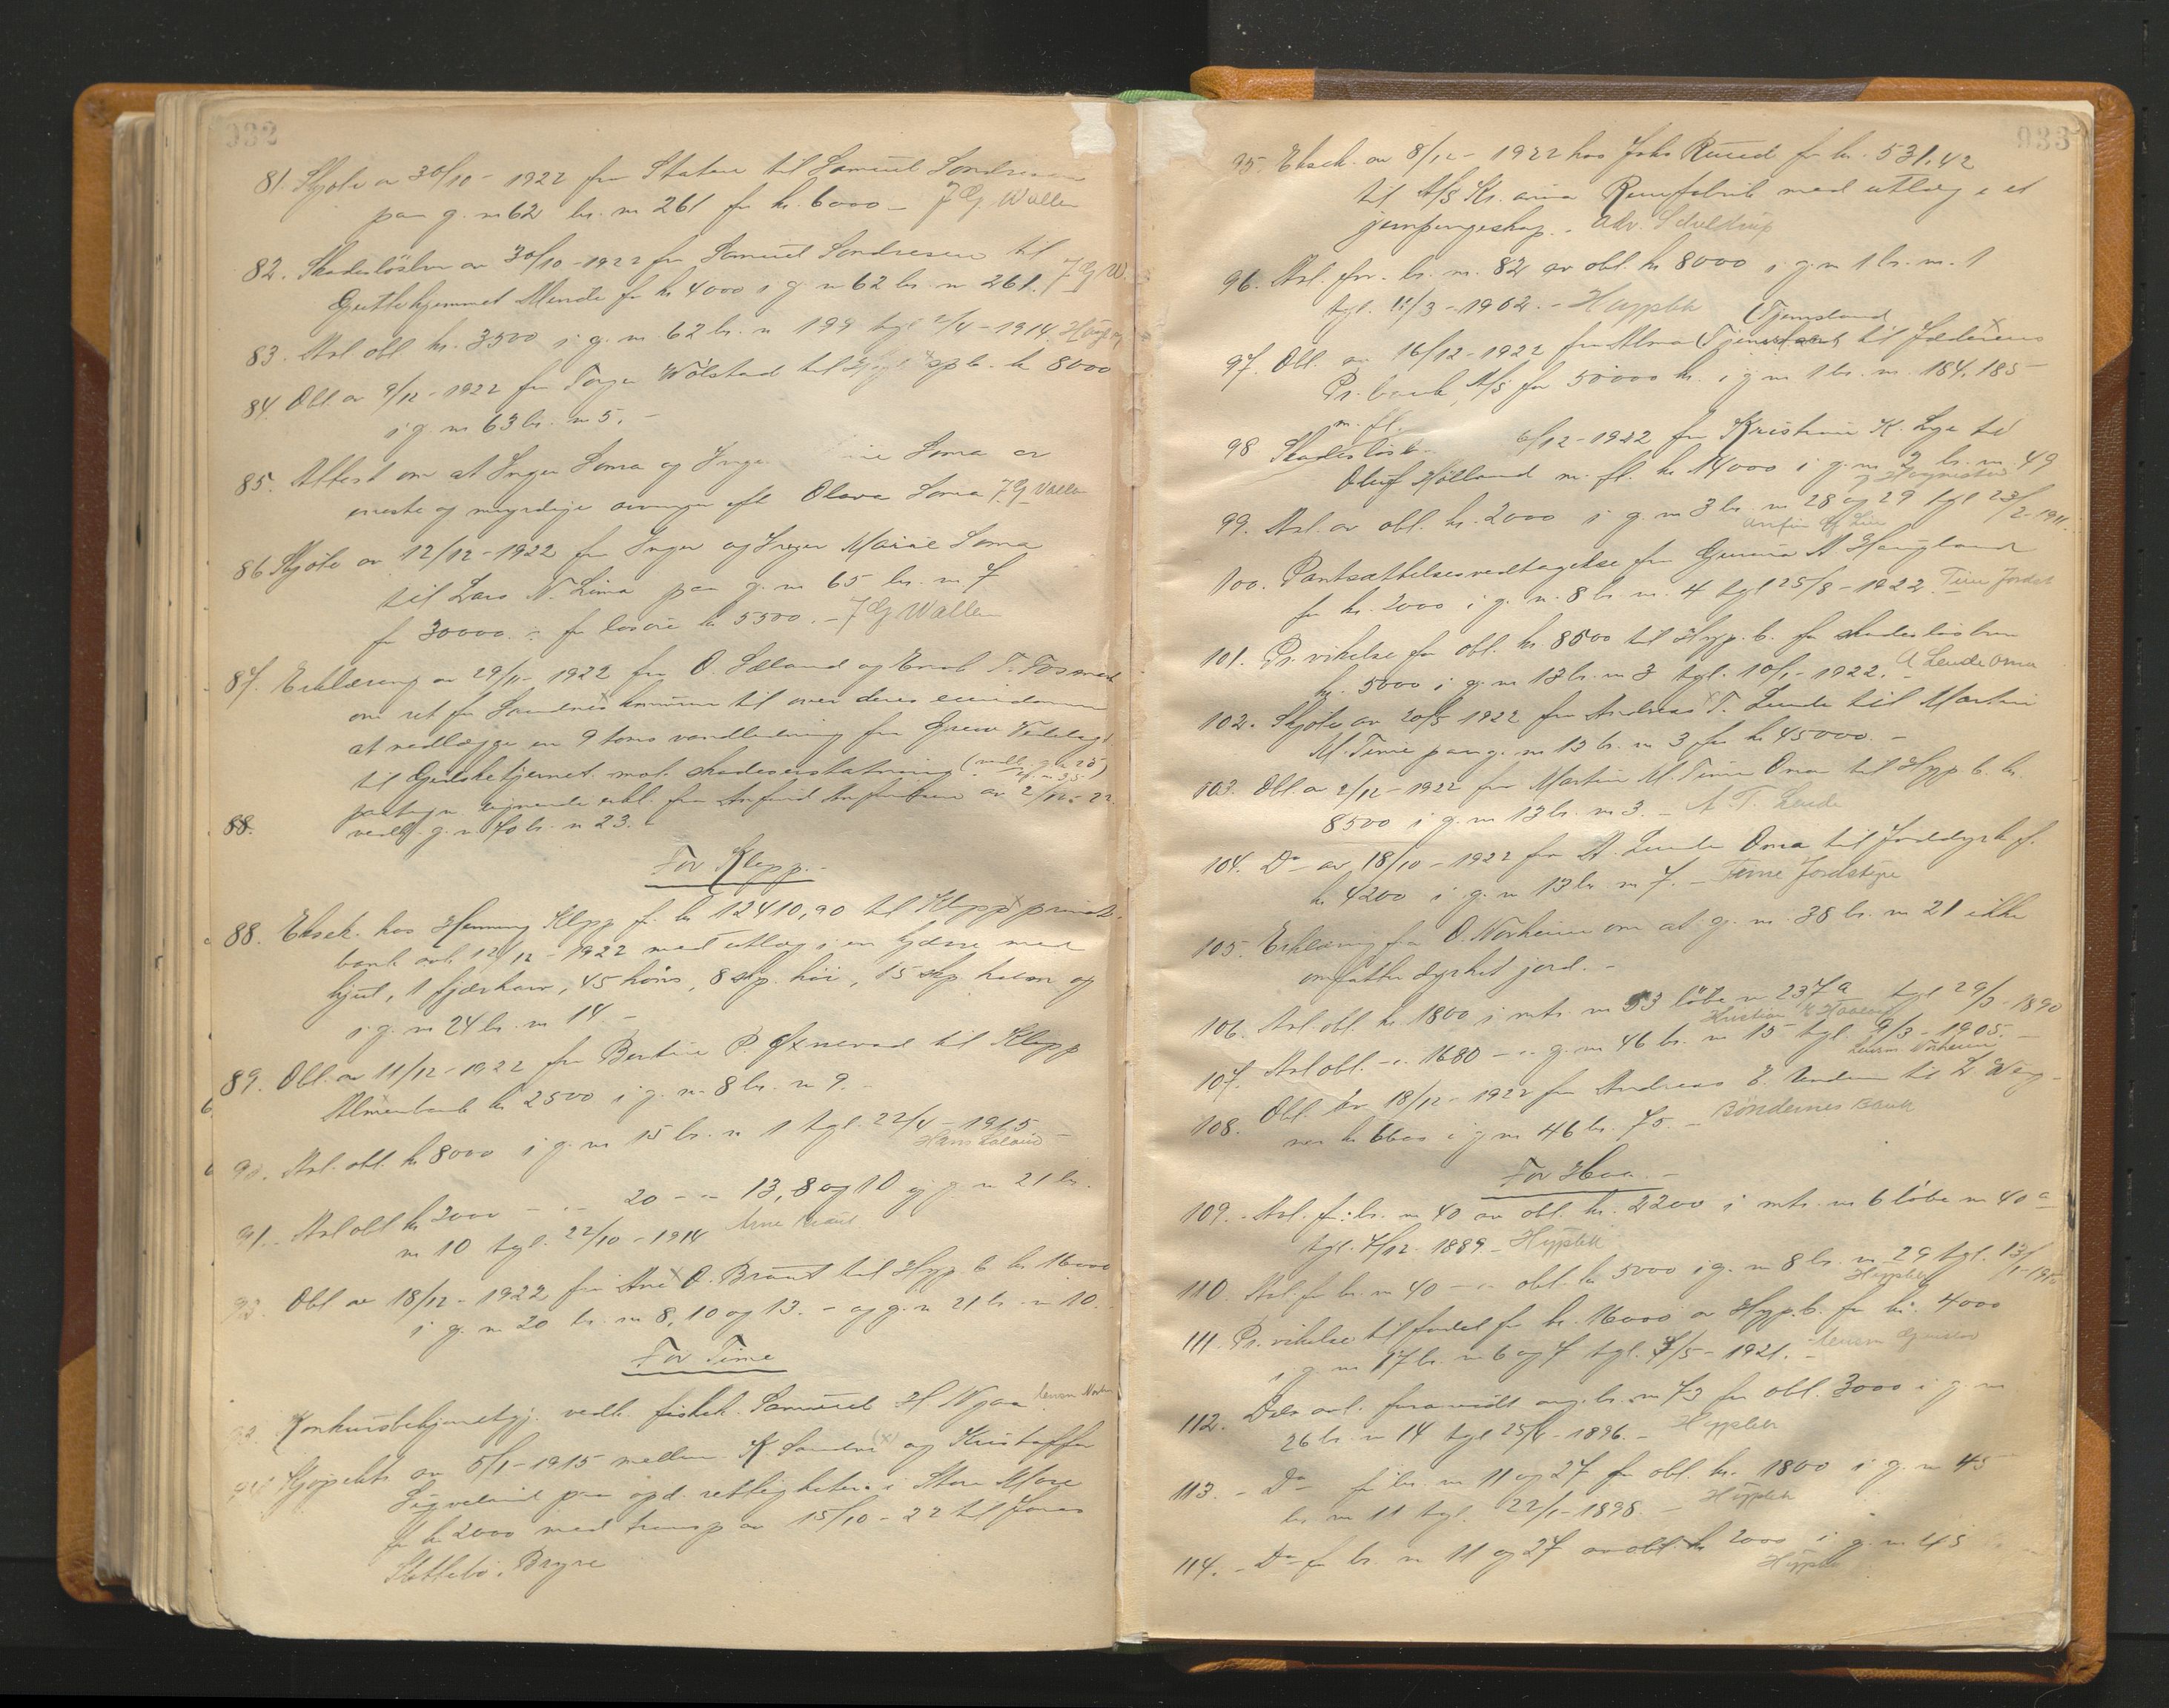 932
81. Skjöte av 30/10 - 1922 fra Staten til Samuel Sondresen
paa g. nr 62 br. nr 261 for kr. 6000 - J G. Wallem
82. Skadeslösbr av 30/10 - 1922 fra Samuel Sondresen til
Guttehjemmet Minde for kr 4000 i g. nr 62 br. nr 261. J G W.
83. Avl obl kr. 3500 i g. nr 62 br. nr 199 tgl 2/4 - 1914.
84. Obl. av 9/12 - 1922 fra Torger Wölstad til spb. kr 8000
i g. nr 63 br. nr 5. -
85. Attest om at Inger Soma og Inger Soma er
eneste og myndige arvinger efter Olava Soma J G Wallem
86 Skjöte av 12/12 - 1922 fra Inger og Inger Marie Soma
til Lars N. Lima paa g. nr 65 br. nr 7
for 30000. - for lösöre kr 5500. - J G Wallem
87. Erklæring av 29/11 - 1922 fra O. Sæland og Enok T. Fosmark
om ret for Sandnes kommune til over deres eiendomme
at nedlægge en 9 toms vandledning fra Grere
til mot skadeserstatning
paategn lignende erkl. fra Anfind Anfindsen av 2/12 - 22
88. vedk. g. nr 70 br. nr 23. -
For Klepp. -
88. Eksek. hos Henning Klepp for kr 12410,90 til Klepp privat-
bank avh. 12/12 - 1922 med utlæg i en kjærre med
hjul, 1 fjærharv, 45 höns, 8 skp. höi, 15 skp. halm og
i g. nr 24 br. nr 14 -
89. Obl. av 11/12 - 1922 fra Bertine P. Öxnevad til Klepp
Almenbank kr 2500 i g. nr 8 br. nr 9. -
90. Avl. obl. kr 8000 i g. nr 15 br. nr 1 tgl. 22/4 - 1915 -
Hans Laland
91. Avl obl kr 2000 - " - 20 - " - 13, 8 og 10 og g. nr 21 br.
nr 10 tgl. 22/10 - 1914
92. Obl av 18/12 - 1922 fra Ane O. Braut til Hyp. b kr 16000
i g. nr 20 br. nr 8, 10 og 13. - og g. nr 21 br. nr 10.
For Time
93. Konkursbekjendtgj. vedk. fiskeh. Samuel H Njaa.
94. Kjöpekt. av 5/1 - 1915 mellem K. Sandve og Kristoffer
Sigveland paa opd. rettigheter i Store Mose
for kr 2000 med transp av 15/10 - 22 til Jonas
Slettebö, Bryne
933
95. Eksek. av 8/12 - 1922 hos Johs Ruud for kr. 531,42
til A/S Kr.ania Remfabrik med utlæg i et
jernpengeskap. - adv. Scheldrup
96. Avl. for br. nr. 82 av obl. kr 8000 i g. nr 1 br. nr. 1
tgl. 11/3 - 1902. - Hyppbk
(Tjemsland
97. Obl. av 16/12 - 1922 fra Alma Tjemsland til Jæderens
Pr. bank A/S for 50000 kr. i g nr 1 br. nr. 184, 185 -
m. fl.
98 Skadeslösbr. 6/12 - 1922 fra Kristian K. Lye til
Oluf Hölland m. fl. kr 14000 i g. nr 2 br. nr 49
99. Avl. av obl. kr. 2000 i g. nr 3 br. nr 28 og 29 tgl 23/2 - 1911.
100. Pantsættelsesvedtagelse fra Gunna A Haugland
for kr. 2000 i g. nr. 8 br. nr. 4 tgl 25/8 - 1922. Time Jordst
101. Pr. vikelse for obl. kr 8500 til Hyp. b. for skadeslösbrev
kr. 5000 i g. nr 13 br. nr 3 tgl. 10/1 - 1922. A Lende Oma
102. Skjöte av 20/5 1922 fra Andreas T. Lende til Martin
M. Time paa g. nr 13 br. nr 3 for kr 45000. -
103. Obl. av 2/12 - 1922 fra Martin M. Time Oma til Hyp. b. kr.
8500 i g. nr 13 br. nr 3. - A T. Lende
104. Do av 18/10 - 1922 fra A. Lende Oma til Jorddyrk. f.
kr 4200 i g. nr 13 br. nr 7. - Time Jordstyre
105. Erklæring fra O. Norheim om at g. nr. 38 br. nr 21 ikke
omfatter dyrket jord. -
106. Avl. obl. kr. 1800 i mtr. nr 53 löbe nr 237a tgl 29/3 - 1890
107. Avl obl. - " - 1680 - " - g. nr 46 br. nr 15 tgl 9/3 - 1905. -
Lensm. Norheim
108. Obl av 18/12 - 1922 fra Andreas E. Undem til
kr 6600 i g nr 46 br. 75. - Böndernes Bank
For Haa. -
109. Avl. for br. nr 40 av obl. kr. 2200 i mtr. nr 6 löbe nr 40a
tgl. 7/12 1889 - Hyppbk
110. Avl. for br. nr 40 - " - obl. kr 5000 i g. nr 8 br. nr 29 tgl. 13/1 - 1910
Hyppbk
111. Pr. vikelse til fordel for kr. 16000 av Hyp. b. for kr. 4000
i g nr 17 br. nr 6 og 7 tgl. 4/5 - 1921. -
112. Dels avl. forsaavidt ang. br. nr 73 for obl. 3000 i g. nr
26 br. nr 14 tgl 25/6 - 1896. - Hyppbk
113. - Do - for br. nr 11 og 27 for obl. kr. 1800 i g. nr 45
br. nr 11 tgl. 22/1 - 1898. - Hyppbk
114. - Do - for br. nr 11 og 27 av obl. kr 2000 i g. nr 45
Hyppbk